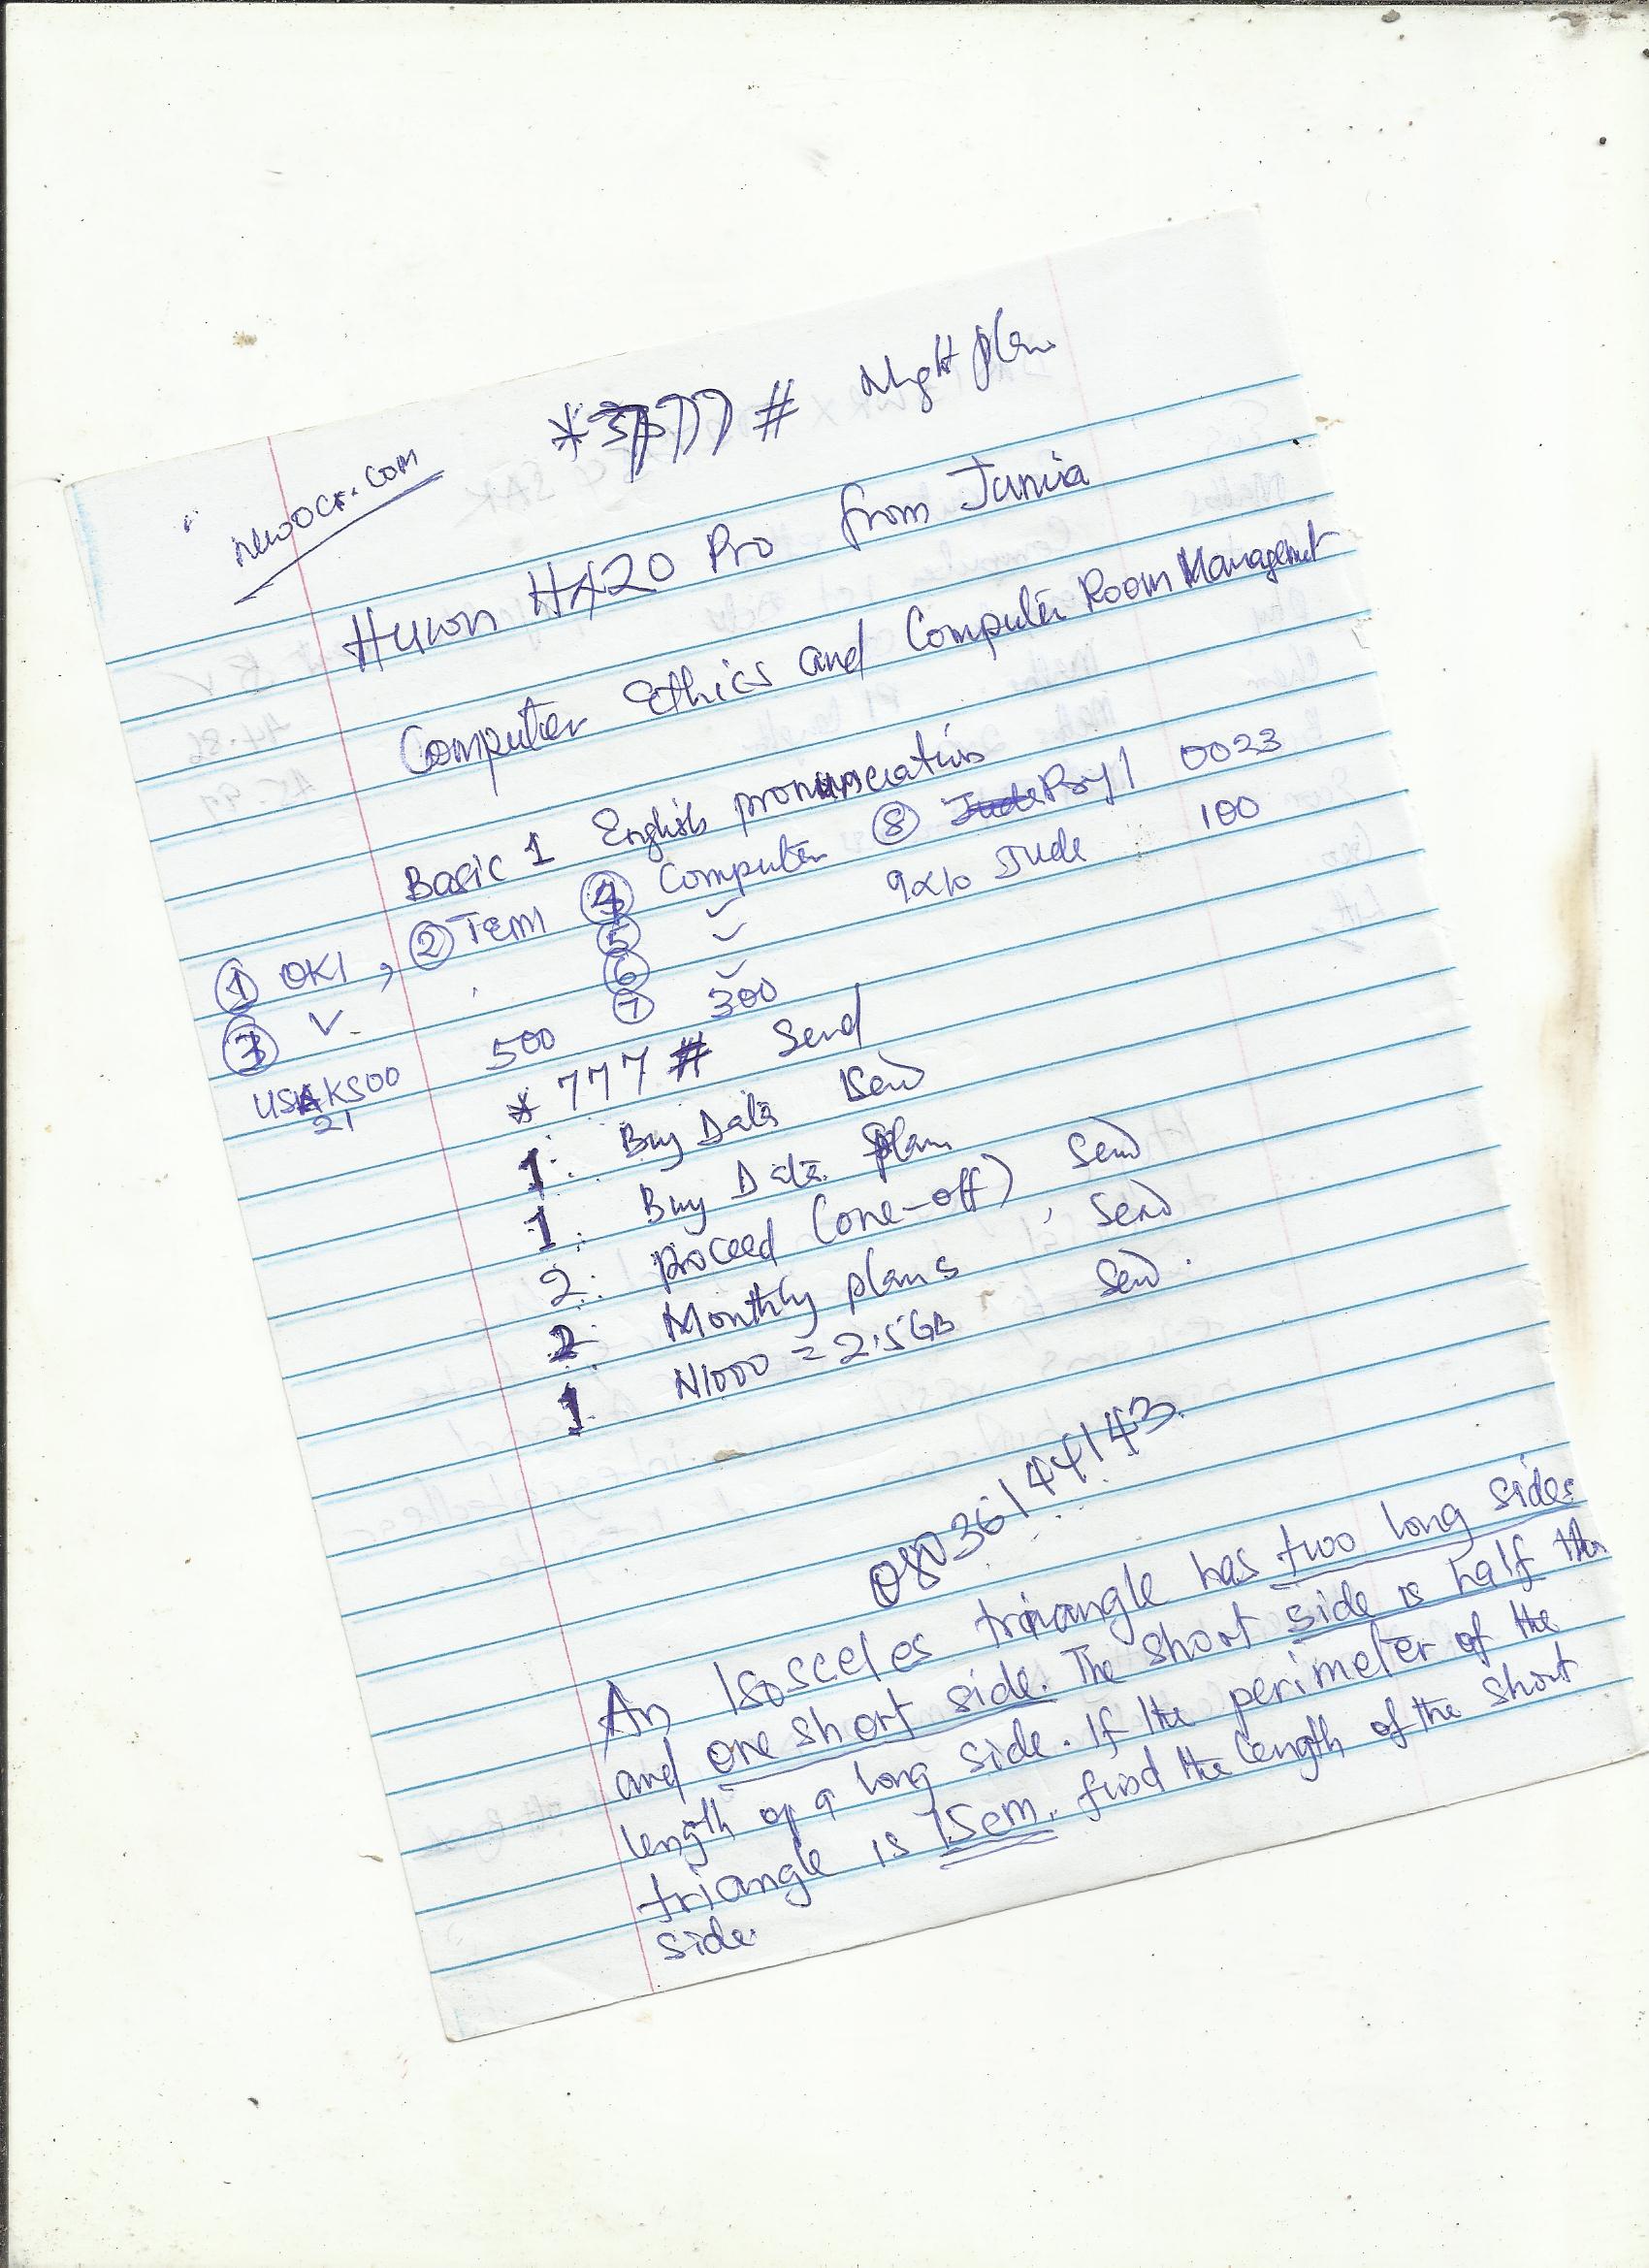 *3777# Night plan
newocr.com
Huion HA20 Pro from Jumia
Computer Ethics and Computer Room Management
Basic 1 English pronunciation
① OK1 , ② Term ④ Computer ⑧ Jude Pry 1 0023
③ ✓. ⑤ ✓ 9x10 Jude 100
⑥ ✓
500 ⑦ 300
21
*777# Send
1: Buy Data Send
1: Buy Data plan
2: proceed (one-off) Send
2 Monthly plans , Send
1 N1000 = 2.5GB Send.
08036144143.
An Isosceles triangle has two long sides
and one short side. The short side is half the
length of a long side. If the perimeter of the
triangle is 15cm, find the length of the short
side.